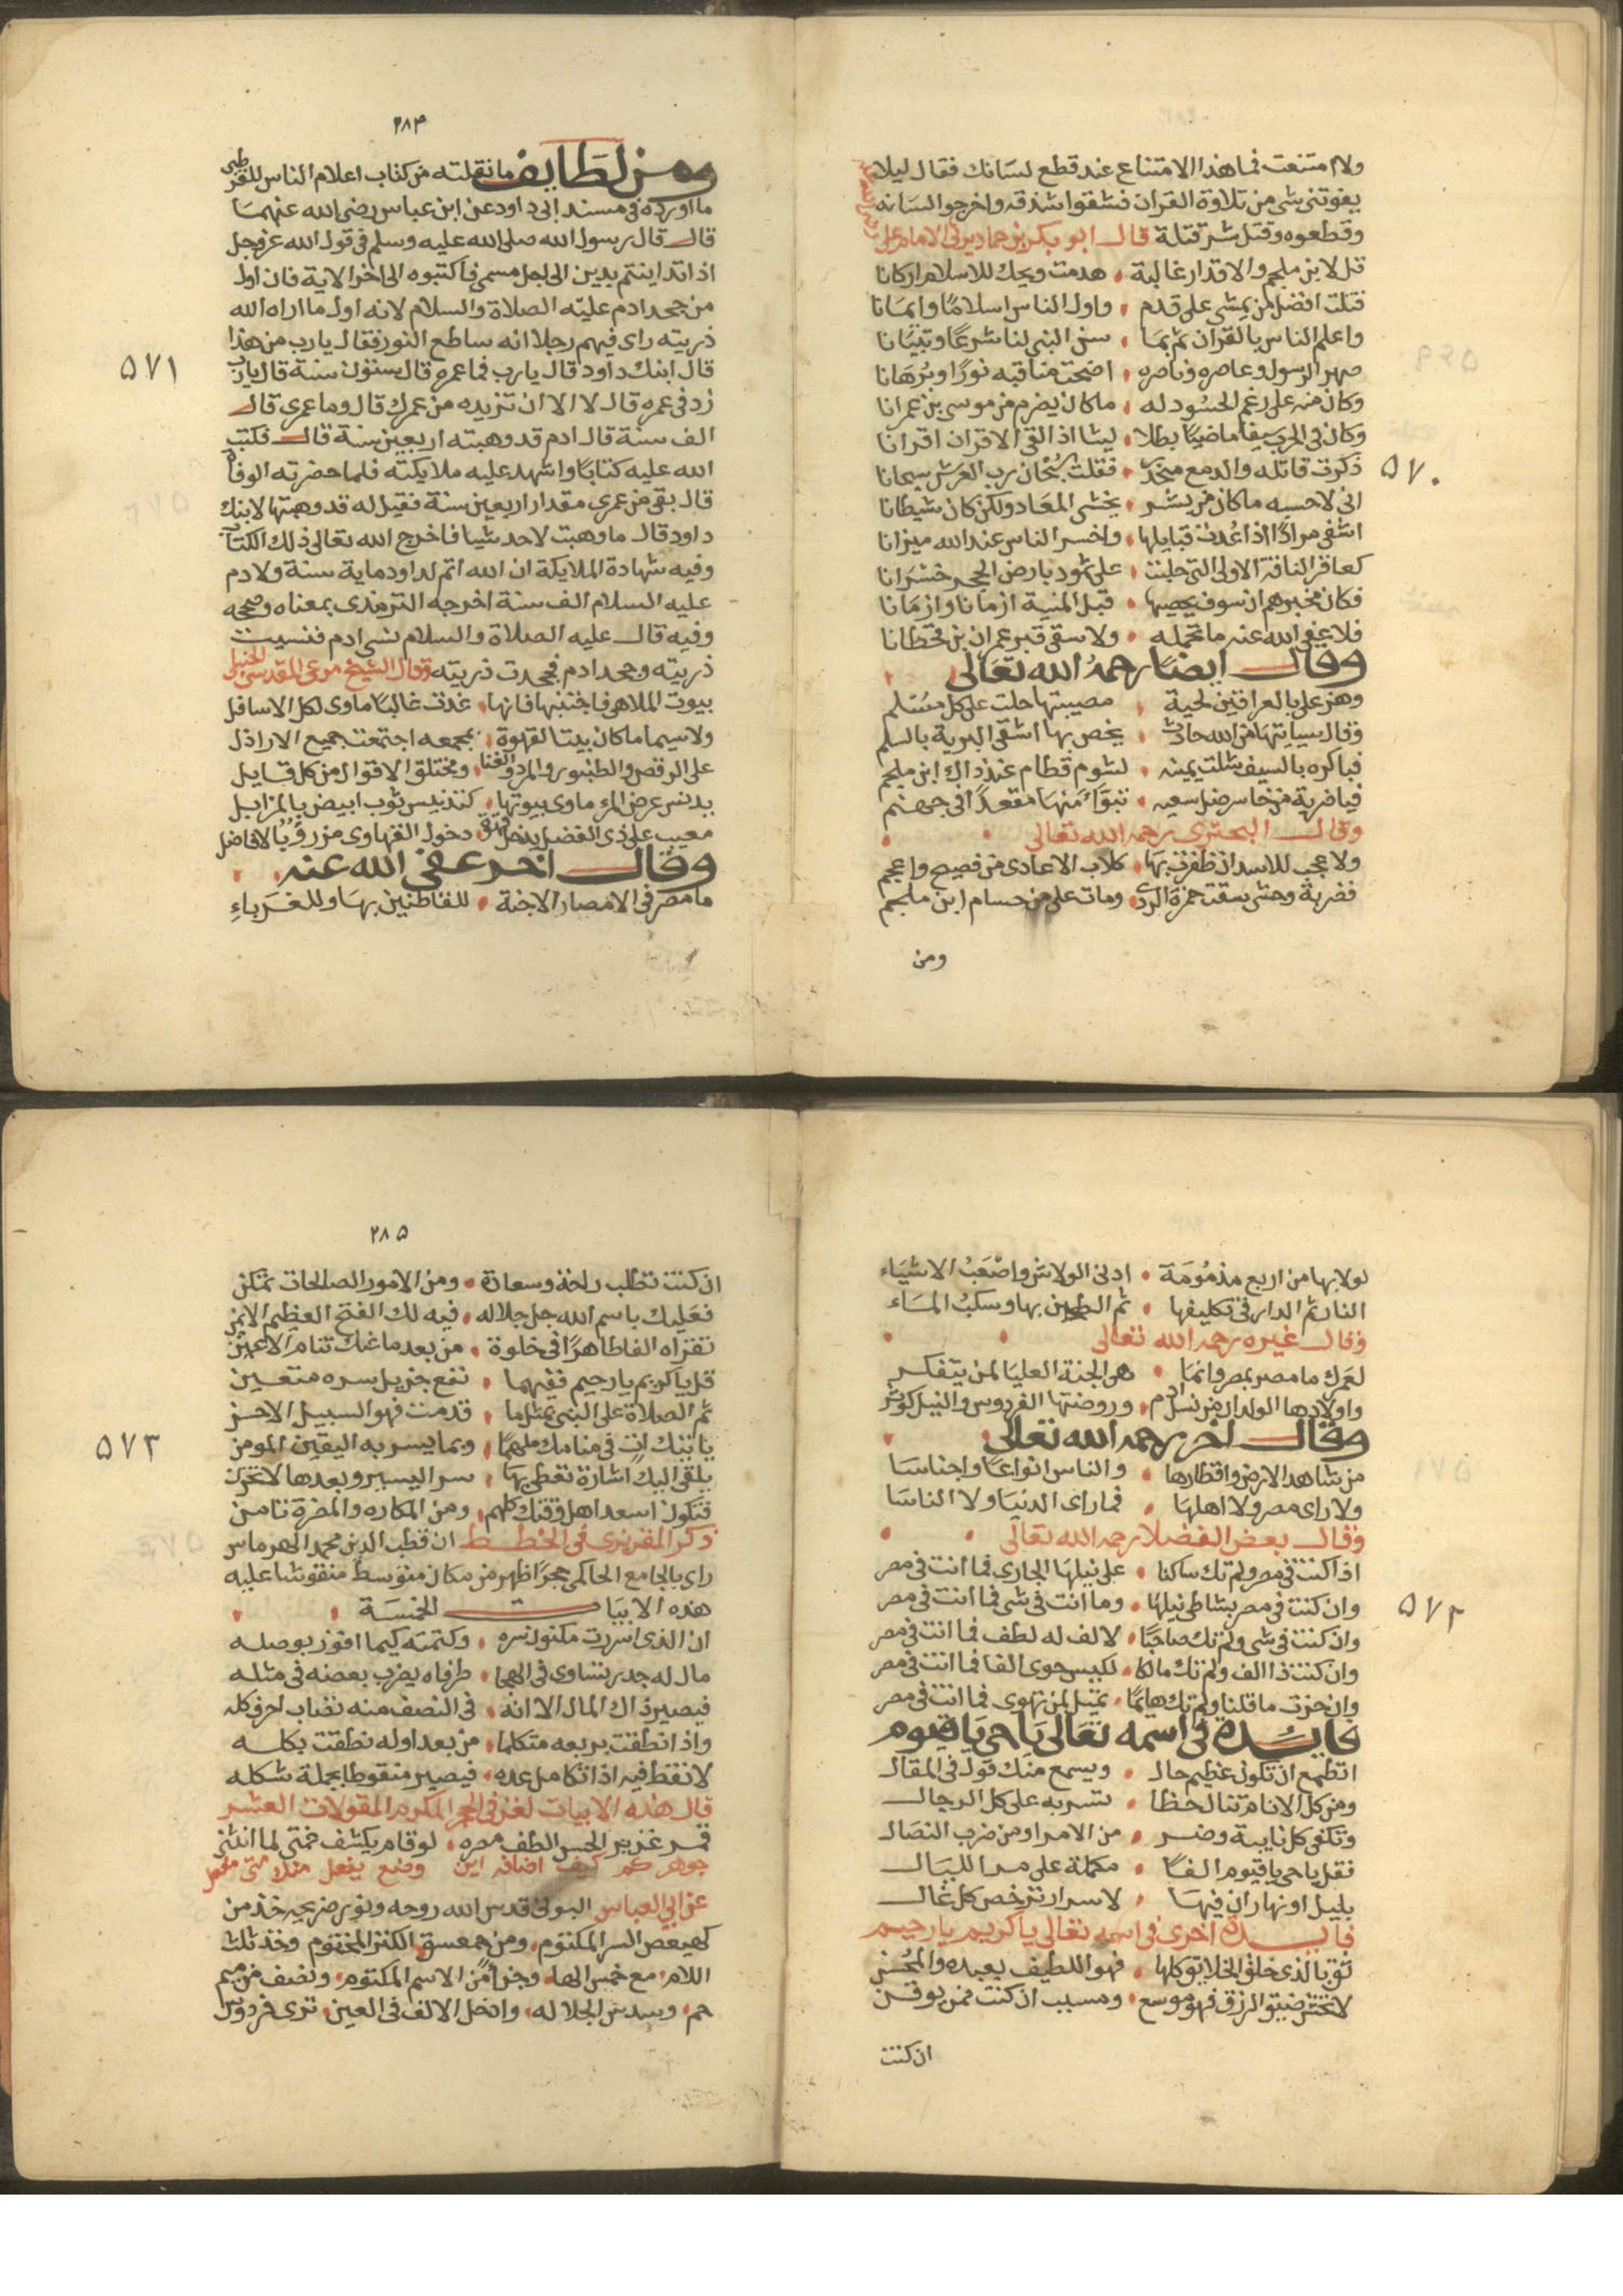 ولا امتنعت فما هذا الامتناع عند قطع لسانك فقال ليلا
يفوتنى شى من تلاوة القران فشقوا شدقه واخرجوا لسانه
وقطعوه وقتل شر قتلة قال ابو بكر بن حماد يرثى الامام على
قل لابن ملجم والاقدار غالبة هدمت ويحك للاسلام اركانا
قتلت افضل من يمشى على قدم واول الناس اسلاما وايمانا
واعلم الناس بالقران ثم بما سن النبى لنا شرعا وتبيانا
صهر الرسول وعاصره وناصره اضحت مناقبه نورا وبرهانا
وكان منه على رغم الحسود له ما كان يضرم من موسى بن عمرانا
وكان فى الحرب سيفا ماضيا بطلا ليثا اذا لقى الاقران اقرانا
ذكرت قاتله والدمع منحدر فقلت سبحان رب العرش سبحانا
۵۷۰
انى لاحسبه ما كان من بشر يخشى المعاد ولكن كان شيطانا
اشقى مرادا اذا عدت قبايلها واخسر الناس عند الله ميزانا
كعاقر الناقة الاولى التى جلبت على ثمود بارض الحجر خسرانا
فكان مخبرهم ان سوف يخضبها قبل المنية ازمانا وازمانا
فلا عفى الله عنه ما تحمله ولا سقى قبر عمران بن حطانا
وقال ايضا رحمه الله تعالى
وهز على بالعراقين لحية مصيبتها حلت على كل مسلم
وقال سياتيها من الله حادث يخص بها اشقى البرية بالسلم
فباكره بالسيف شلت يمينه لشوم قطام عند ذاك ابن ملجم
فيا ضربة من خاسر ضل سعيه تبوا منها مقعدا فى جهنم
وقال البحترى رحمه الله تعالى
ولا عجب للاسد ان ظفرت بها كلاب الاعادى من فصيح واعجم
فضربة وحشى سقت حمزة الردى ومات على من حسام ابن ملجم
ومن
۲۸۴
ومن لطايف ما نقلته من كتاب اعلام الناس للقرطبى
ما اورده فى مسند ابى داود عن ابن عباس رضى الله عنهما
قال قال رسول الله صلى الله عليه وسلم فى قول الله عز وجل
اذا تداينتم بدين الى اجل مسمى فاكتبوه الى اخر الاية فان اول
من جحد ادم عليه الصلاة والسلام لانه اول ما اراه الله
ذريته راى فيهم رجلا انه ساطع النور فقال يارب من هذا
قال ابنك داود قال يارب فما عمره قال ستون سنة قال يارب
۵۷۱
زد فى عمره قال لا الا ان تزيده من عمرك قال وما عمرى قال
الف سنة قال ادم قد وهبته اربعين سنة قال فكتب
الله عليه كتابا واشهد عليه ملايكته فلما حضرته الوفاة
قال بقى من عمرى مقدار اربعين سنة فقيل له قد وهبتها لابنك
داود قال ما وهبت لاحد شيا فاخرج الله تعالى ذلك الكتاب
وفيه شهادة الملايكة ان الله اتم لداود ماية سنة ولادم
عليه السلام الف سنة اخرجه الترمذى بمعناه وصححه
وفيه قال عليه الصلاة والسلام نسى ادم فنسيت
ذريته وجحد ادم فجحدت ذريته وقال الشيخ مرعى المقدسى الحنبلى
بيوت الملاهى فاجتنبها فانها غدت غالبا ماوى لكل الاسافل
ولا سيما ما كان بيتا لقهوة بمجمعه اجتمعت جميع الاراذل
على الرقص والطنبور والمرد والغنا ومختلق الاقوال من كل قايل
يدنس عرض المرء ماوى بيوتها كتدنيس ثوب ابيض بالمزابل
معيب على ذى الفضل يدخل دخول القهاوى مزر بالافاضل
وقال اخر عفى الله عنه
ما مصر فى الامصار الا جنة للقاطنين بها وللغرباء
لولا بها من اربع مذمومة ادنى الولاش واصعب الاشياء
النار ثم الدار فى تكليفها ثم الطين بها وسكب الماء
وقال غيره رحمه الله تعالى
لعمرك ما مصر بمصر وانما هى الجنة العليا لمن يتفكر
واولادها الولدان من نسل ادم وروضتها الفردوس والنيل كوثر
وقال اخر رحمه الله تعالى
من شاهد الارض واقطارها والناس انواعا واجناسا
ولا راى مصر ولا اهلها فما راى الدنيا ولا الناسا
وقال بعض الفضلا رحمه الله تعالى
اذا كنت فى مصر ولم تك ساكنا على نيلها الجارى فما انت فى مصر
وان كنت فى مصر بشاطى نيلها وما انت فى شى فما انت فى مصر
۵۷۲
وان كنت فى شى ولم تك صاحبا لالف له لطف فما انت فى مصر
وان كنت ذا الف ولم تك مالكا لكيس حوى الفا فما انت فى مصر
وان حزت ما قلنا ولم تك هايما تميل لمن تهوى فما انت فى مصر
فايدة فى اسمه تعالى يا حى يا قيوم
اتطمع ان تكون عظيم حال ويسمع منك قول فى المقال
ومن كل الانام تنال حظا تسر به على كل الرجال
وتكفى كل نايبة وضر من الامرا ومن ضرب النصال
فقل يا حى يا قيوم الفا مكملة على مر الليال
بليل او نهار ان فيها لاسرار ترخص كل غال
فايدة اخرى فى اسمه تعالى يا كريم يا رحيم
ثق بالذى خلق الخلايق كلها فهو اللطيف بعبده والمحسن
لا تخش ضيق الرزق فهو موسع ومسبب ان كنت فمن يوقن
ان كنت
۲۸۵
ان كنت تطلب راحة وسعادة ومن الامور الصالحات تمكن
فعليك باسم الله جل جلاله فيه لك الفتح العظيم الامين
تقراه الفا طاهرا فى خلوة من بعد ما عنك تنام الاعين
قل يا كريم يا رحيم ففيهما نفع جزيل سره متعين
ثم الصلاة على النبى بمثل ما قدمت فهو السبيل الاحسن
۵۷۳
ياتيك ات فى منامك ملهما وبما يسر به اليقين المومن
يلقى اليك اشارة تعطى بها سر اليسير وبعدها لا تحزن
فتكون اسعد اهل وقتك كلهم ومن المكاره والمضرة تامن
ذكر المقريزى فى الخطط ان قطب الدين محمد الهرماس
راى بالجامع الحاكمى حجرا ظهر من مكان متوسط منقوشا عليه
هذه الابيات الخمسة
ان الذى اسررت مكنون سره وكتمته كيما افوز بوصله
مال له جدر تساوى فى الهجا طرفاه يضرب بعضه فى مثله
فيصير ذاك المال الا انه فى النصف منه تصاب احرف كله
واذا نطقت بربعه متكلما من بعد اوله نطقت بكله
لا نقط فيه اذا تكامل عده فيصير منقوطا بجملة شكله
قال هذه الابيات لغز فى الحجر المكرم المقولات العشر
قمر غزير الحسن الطف مصره لو قام يكشف غمتى لما انثنى
جوهر كم كيف اضافه اين وضع يفعل ملك متى منفعل
عن ابى العباس البونى قدس الله روحه ونور ضريحه خذ من
كهيعص السر المكتوم ومن حمعسق الكنز المختوم وخذ ثلث
اللام مع خمس الها وجزأ من الاسم المكتوم ونصف من ميم
حم وسدس الجلاله وادخل الالف فى العين ترى